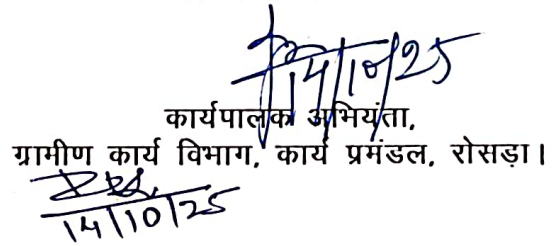 14/10/25
कार्यपालक अभियंता,
ग्रामीण कार्य विभाग, कार्य प्रमंडल, रोसड़ा।
14/10/25